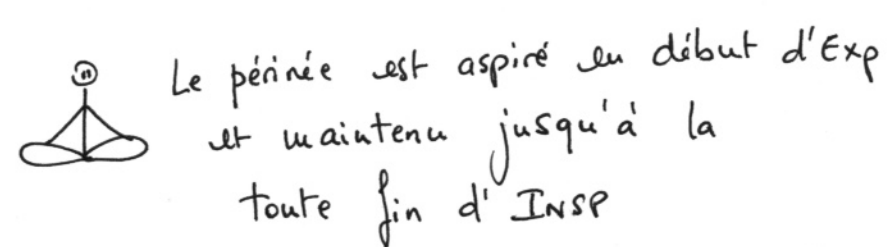 Le périnée est aspiré en début d'Exp
et maintenu jusqu'à la
toute fin d'INSP